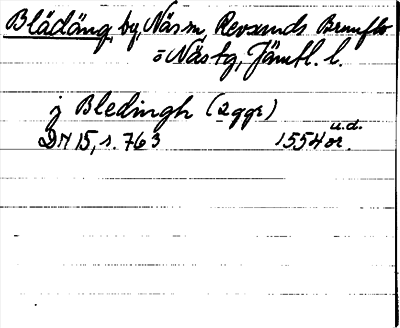 Blädäng, by, Näs sn, Revsunds Brunflo
o Näs tg, Jämtl. l.
j Bledingh (2 ggr)
DN 15, s. 763 1554 or. u.d.